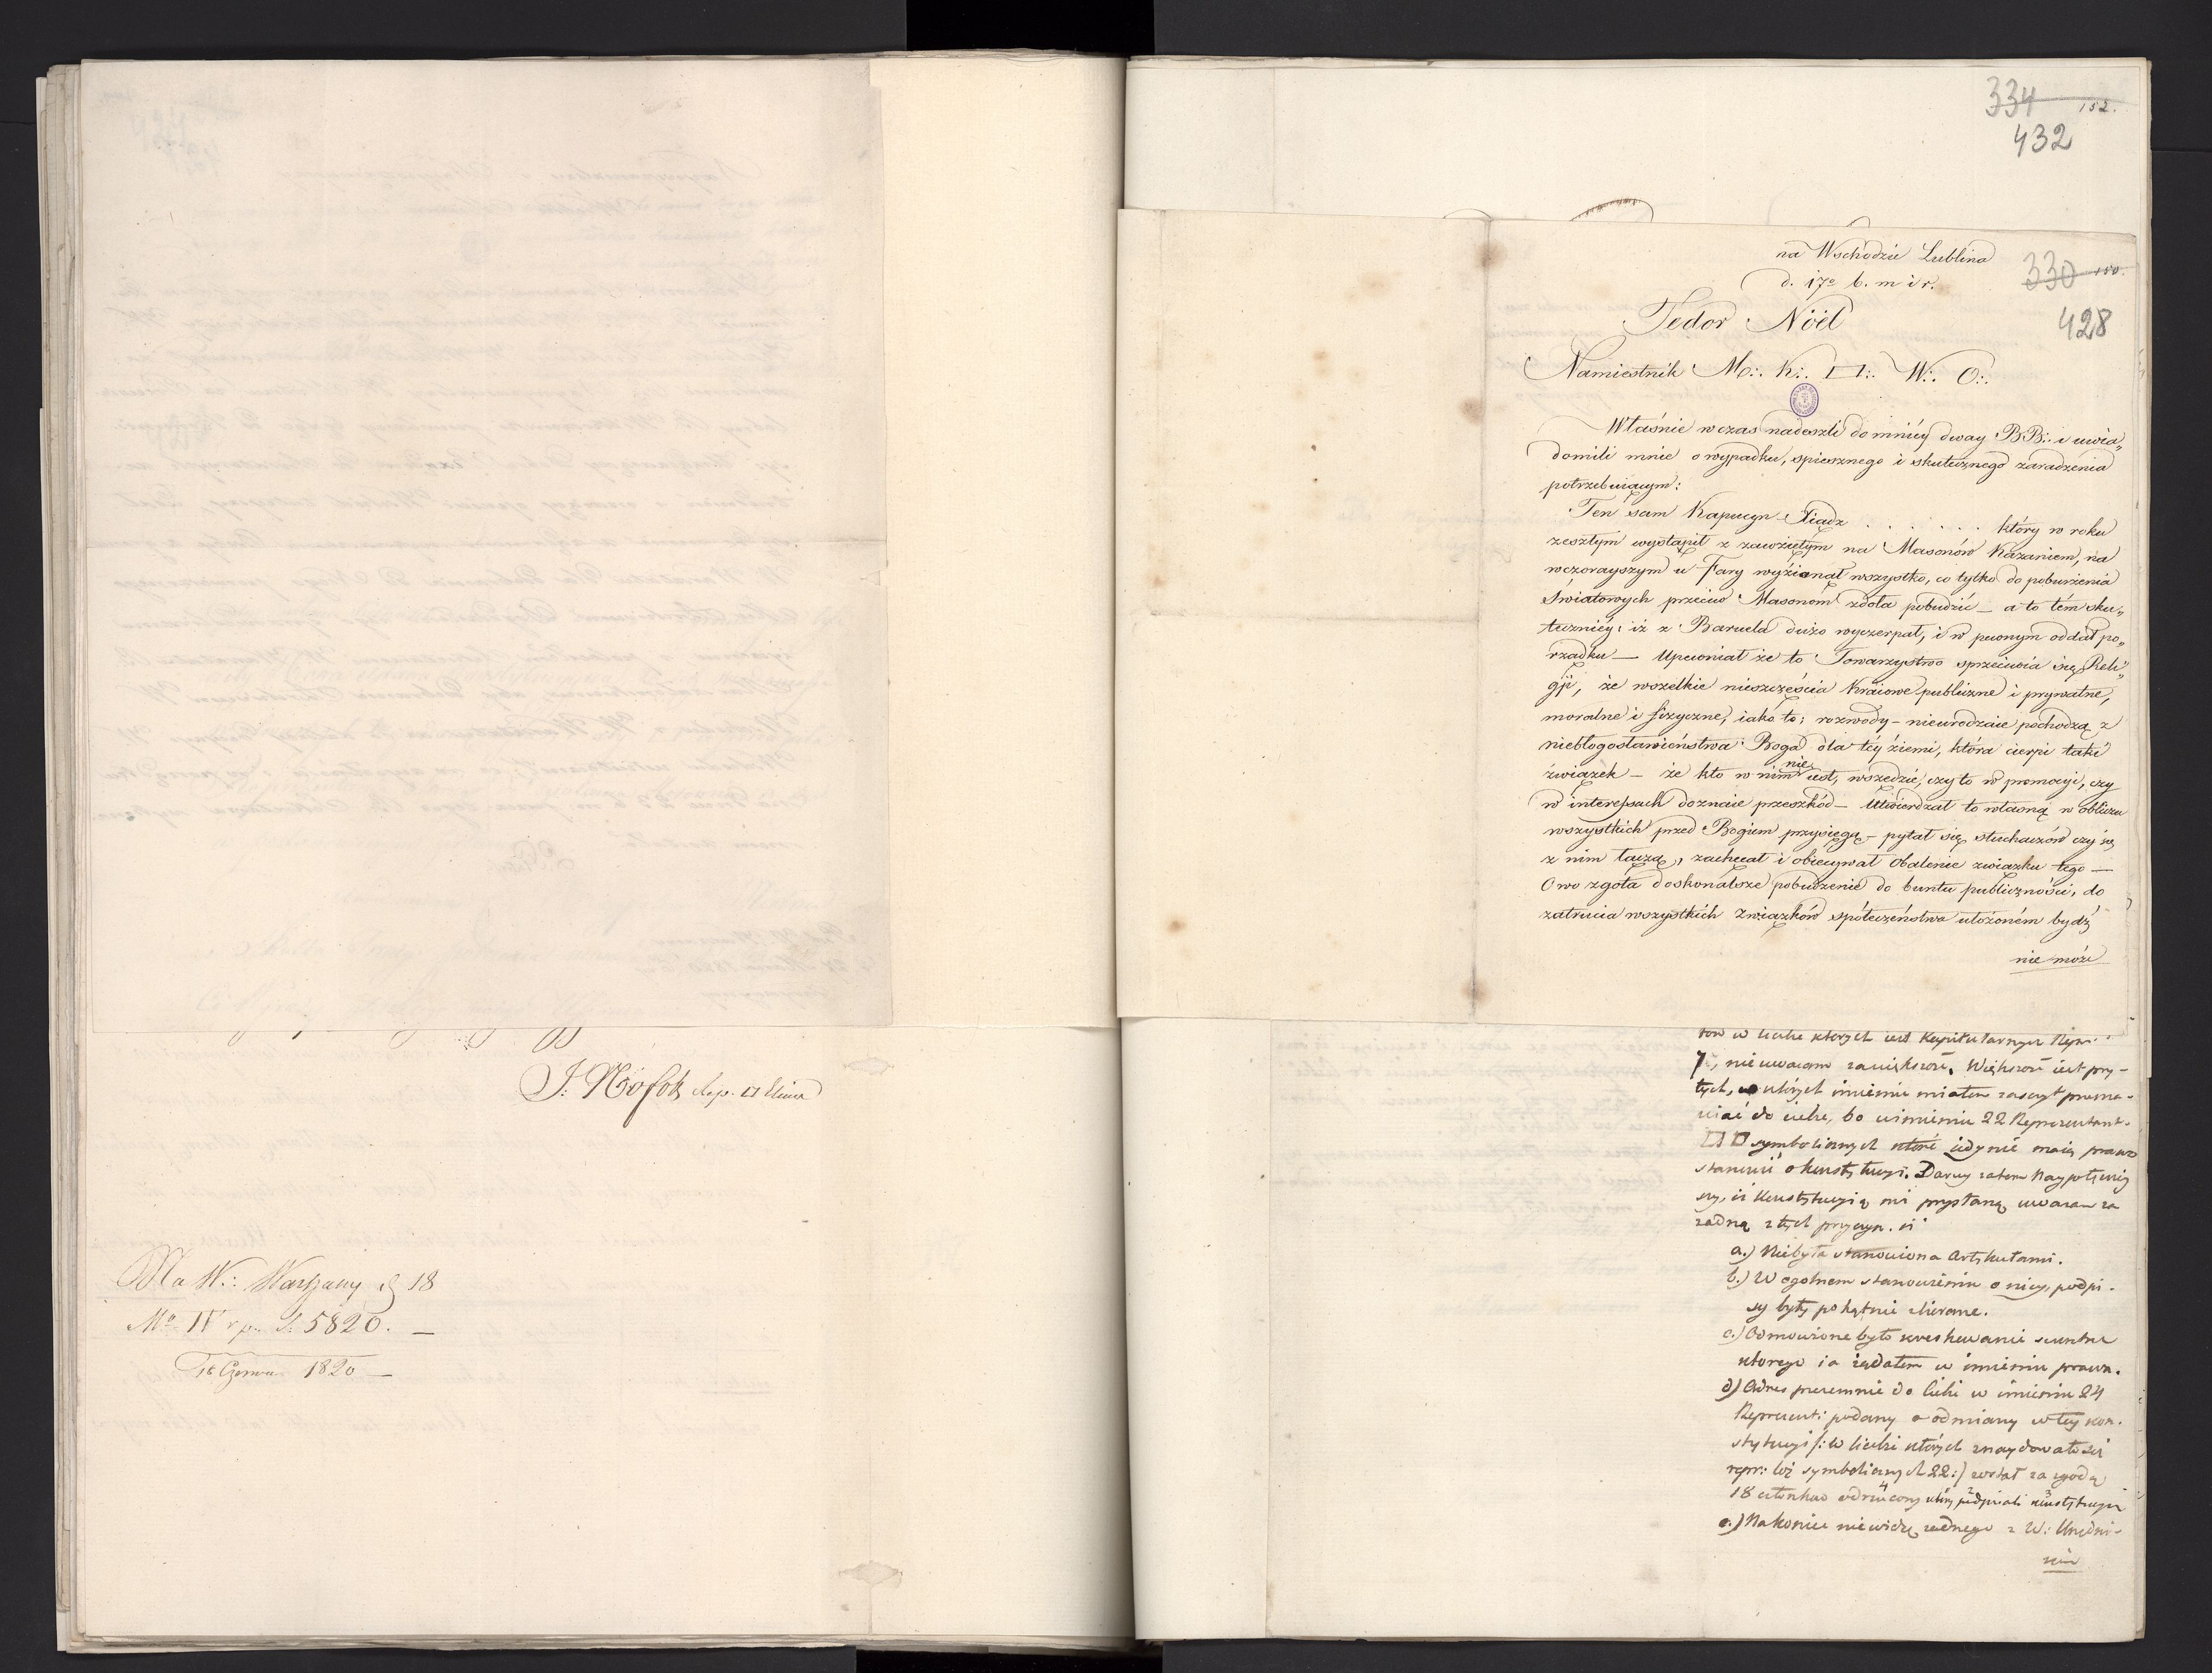 J. Nosok Rep. □ Elew
Na W∴ Warszawy d 18
Mca IV r. p. S: 5820. —
18 Czerwca 1820 —
334 152.
432
na Wschodzie Lublina
d. 17o b. m i r.
330 150.
428
Fedor Nöel
Namiestnik M∴ K∴ □∴ W∴ O∴
Właśnie w czas nadeszli do mniéy dway BB∴ i uwia„
domili mnie o wypadku, spiesznego i skutecznego zaradzenia
potrzebuiącym:
Ten sam Kapucyn Xiądz . . . . . . który w roku
zeszłym wystąpił z zawziętym na Masonów Kazaniem, na
wczorayszym u Fary wyzionął wszystko, co tylko do poburzenia
Światowych przeciw Masonom zdoła pobudzić — a to tém sku„
teczniéy, iż z Baruela dużo wyczerpał, i w pewnym oddał po„
rządku — Upewniał że to Towarzystwo sprzeciwia się Reli„
gji, że wszelkie nieszczęścia Kraiowe publiczne i prywatne,
moralne i fizyczne, iako to; rozwody – nieurodzaie pochodzą z
niebłogosławieństwa Boga dla téy ziemi, która cierpi taki
związek — że kto w nim nie iest, wszędzie, czy to w promocyi, czy
w interessach doznaie przeszkód — Utwierdzał to własną w obliczu
wszystkich przed Bogiem przysięgą – pytał się słuchaczów czy się
z nim łączą, zachęcał i obiecywał obalenie związku tego —
Owo zgoła doskonalsze pobudzenie do buntu publiczności, do
zatrucia wszystkich związków społeczeństwa ułożoném bydź
nie może
tow w liczbie ktorych iest Kapitularnych Repr:
7, nie uwazam za większość. Większość iest przy–
tych, w których imieniu miałem zaszczyt przema–
wiać do ciebie, bo w imieniu 22 Reprezentant.
□ □ symbolicznych które iedynie maią prawo
stanowić o konstytucyi. Daruy zatem Naypotężniey
szy, iż Konstytucyią mi przysłaną uwazam za
zadną z tych przyczyn. iż
a.) Niebyła stanowiona Artykułami.
b.) W ogolnem stanowieniu o niey, podpi–
sy były pokątnie zbierane.
c.) Odmowione było kreskowanie sekretne
ktorego ia żądałem w imieniu prawa.
d) Adres przezemnie do Ciebie w imieniu 24
Reprezent: podany o odmiany w tey kon–
stytucyi /: w liczbie których znaydowało się
repr: lóż symbolicznych 22:/ został za zgodą
18 członków odrzucony którzy podpisali konstytucyią
e.) Nakoniec niewidzę zadnego z W: Urzędni–